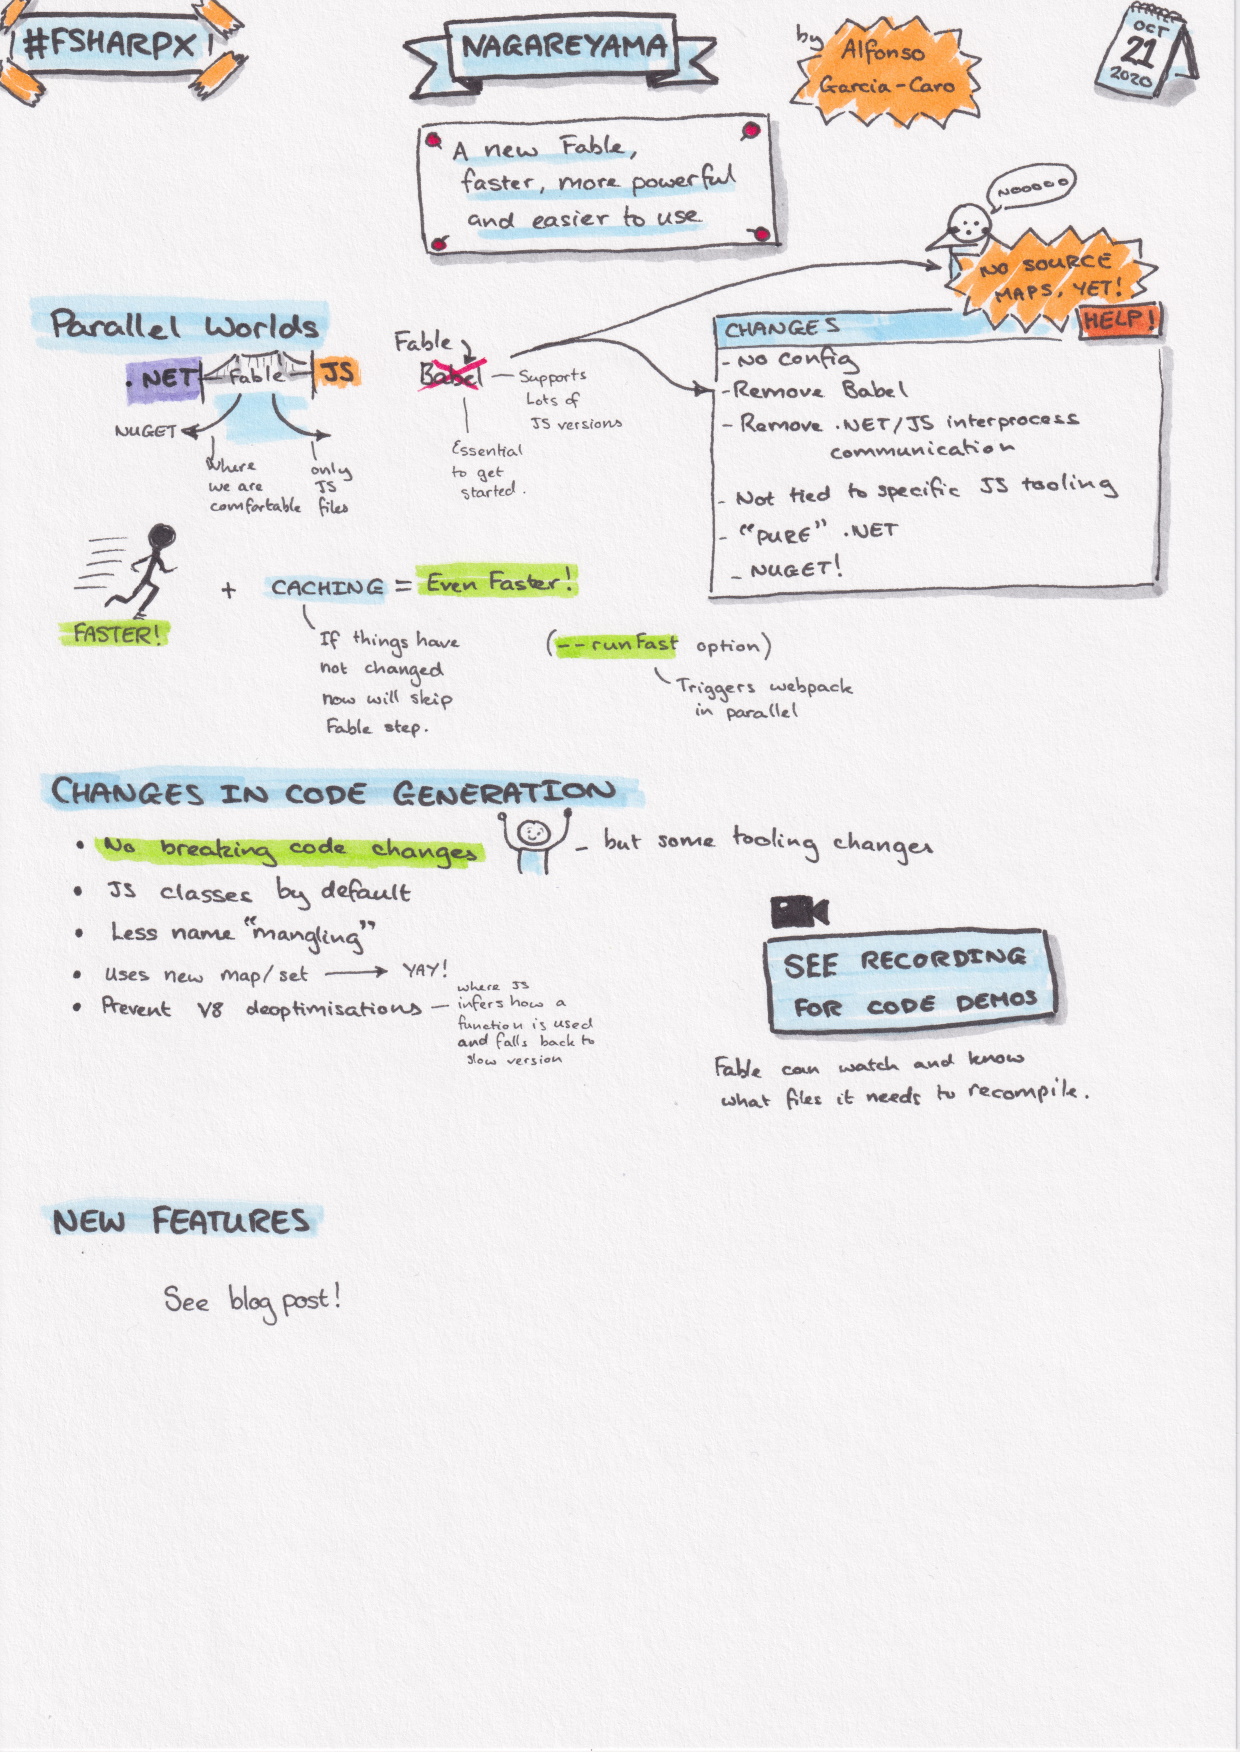 #FSHARPX
NAGAREYAMA
by
Alfonso
Garcia-Caro
OCT
21
2020
A new Fable,
faster, more powerful
and easier to use
NOOOOO
NO SOURCE
MAPS, YET!
HELP!
Parallel Worlds
.NET
Fable
JS
NUGET
Where
we are
comfortable
only
JS
files
Fable
Babel
Supports
Lots of
JS versions
Essential
to get
started.
CHANGES
- No config
- Remove Babel
- Remove .NET/JS interprocess
communication
- Not tied to specific JS tooling
- "PURE" .NET
- NUGET!
FASTER!
+ CACHING = Even Faster!
If things have
not changed
now will skip
Fable step.
(--runFast option)
Triggers webpack
in parallel
CHANGES IN CODE GENERATION
• No breaking code changes - but some tooling changes
• JS classes by default
• Less name "mangling"
• Uses new map/set → YAY!
• Prevent V8 deoptimisations —
where JS
infers how a
function is used
and falls back to
slow version
SEE RECORDING
FOR CODE DEMOS
Fable can watch and know
what files it needs to recompile.
NEW FEATURES
See blog post!